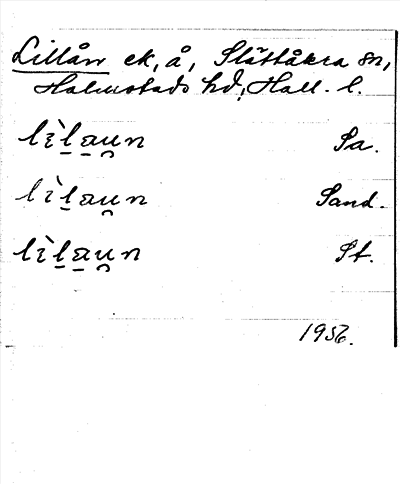 Lillån ek, å, Slättåkra sn,
Halmstads hd, Hall. l.
lìlau̯n Sa.
lìlau̯n Sand.
lìlau̯n St.
1956.